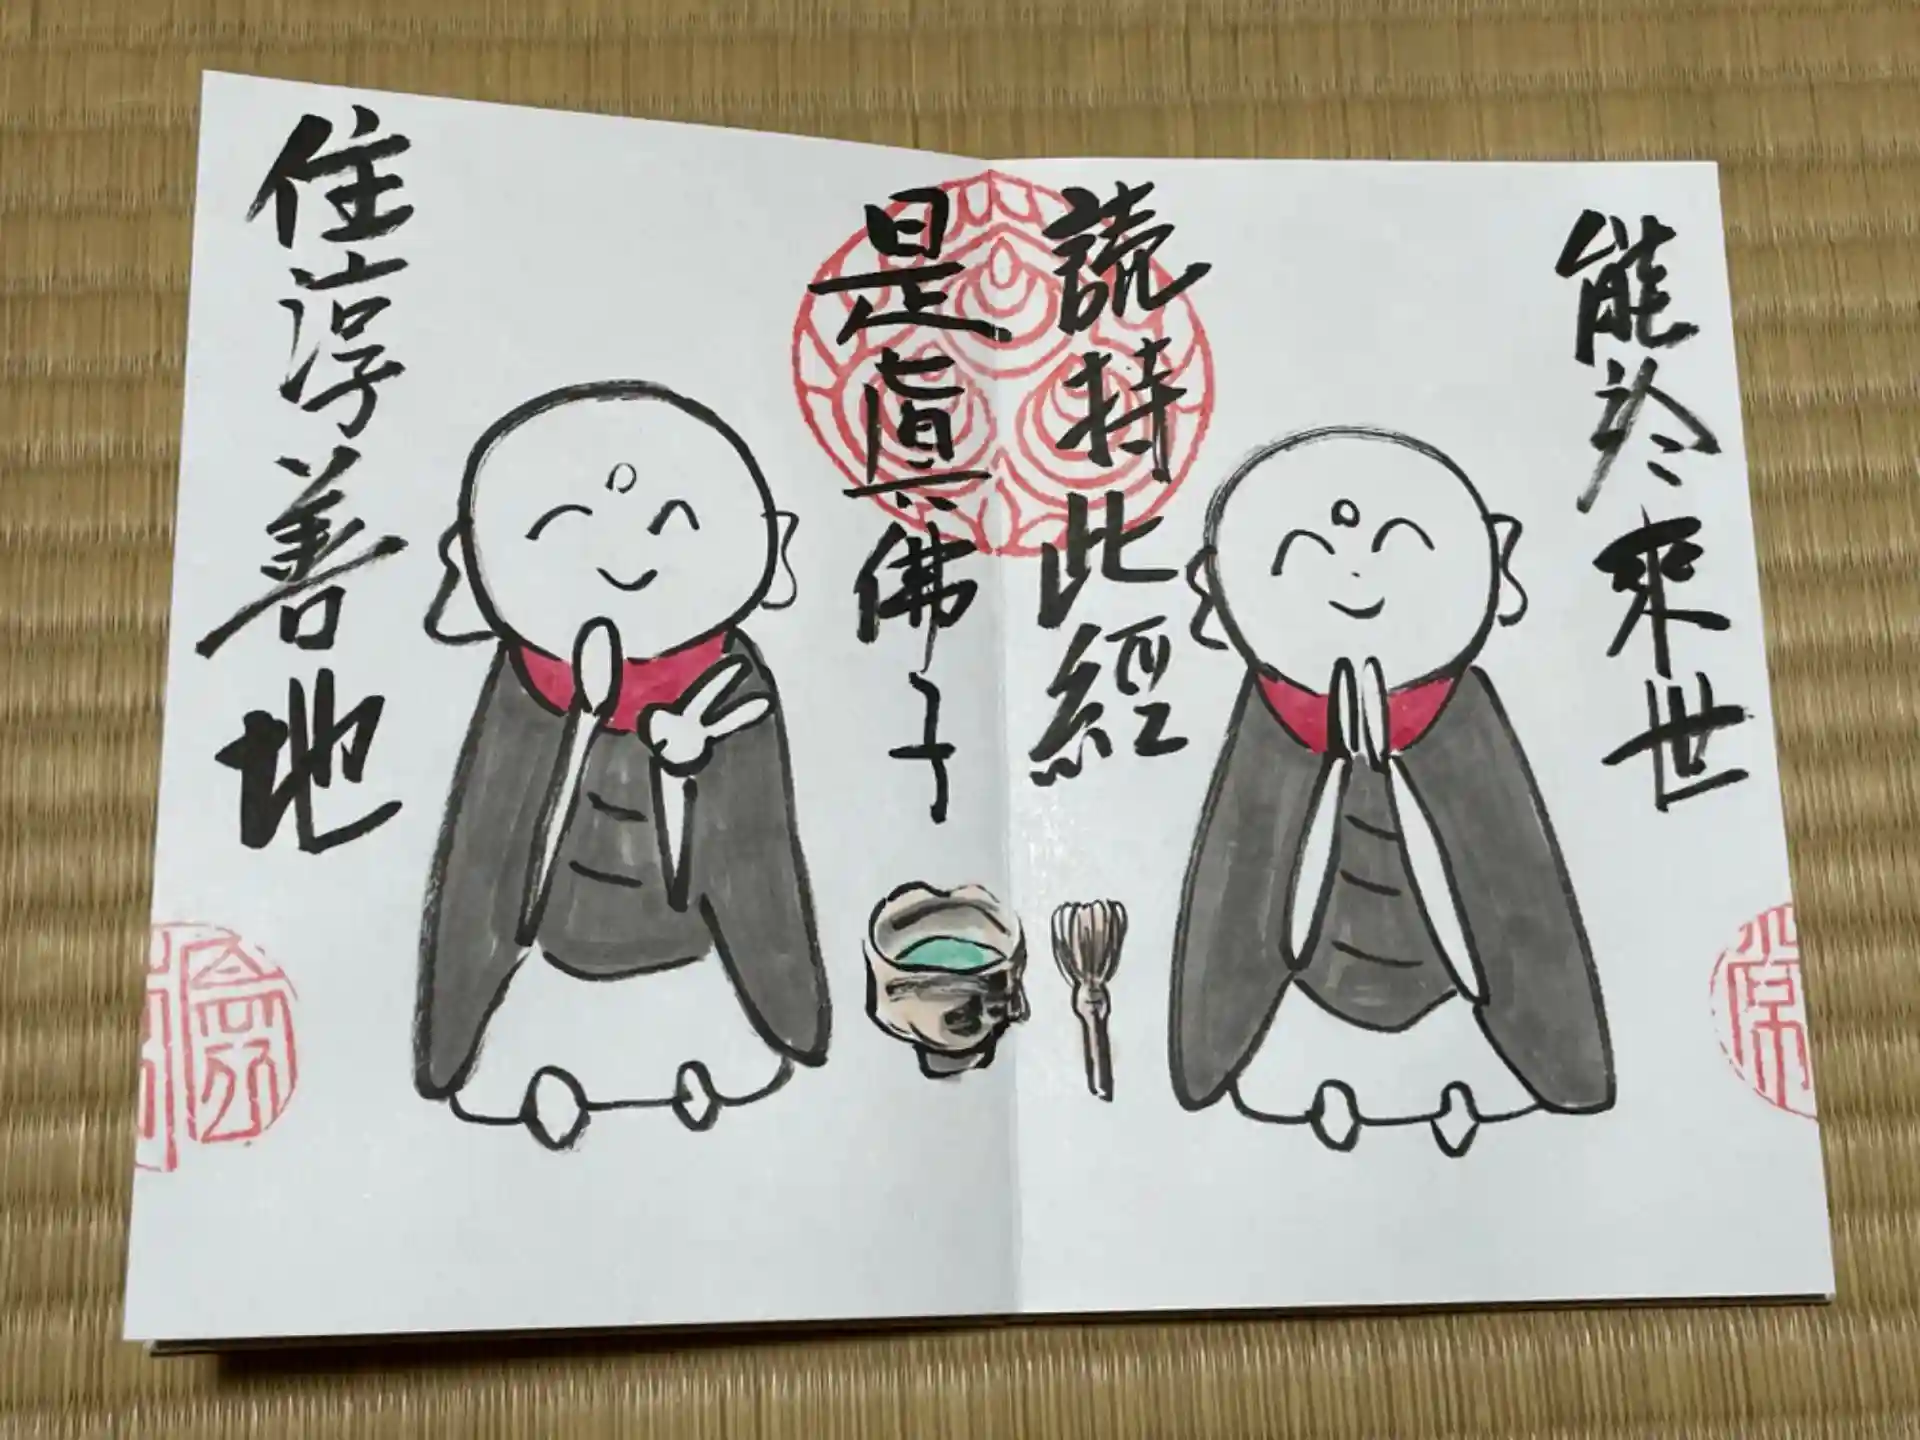 能於来世
読持此經
是眞佛子
住淳善地